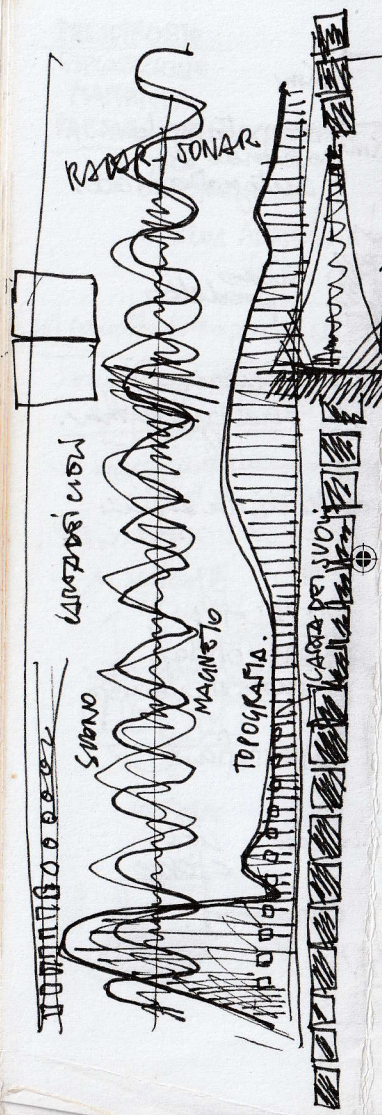 RADAR - SONAR
SUONO
MAGNETIO
TOPOGRAFIA.
CARTA DEI SUONI